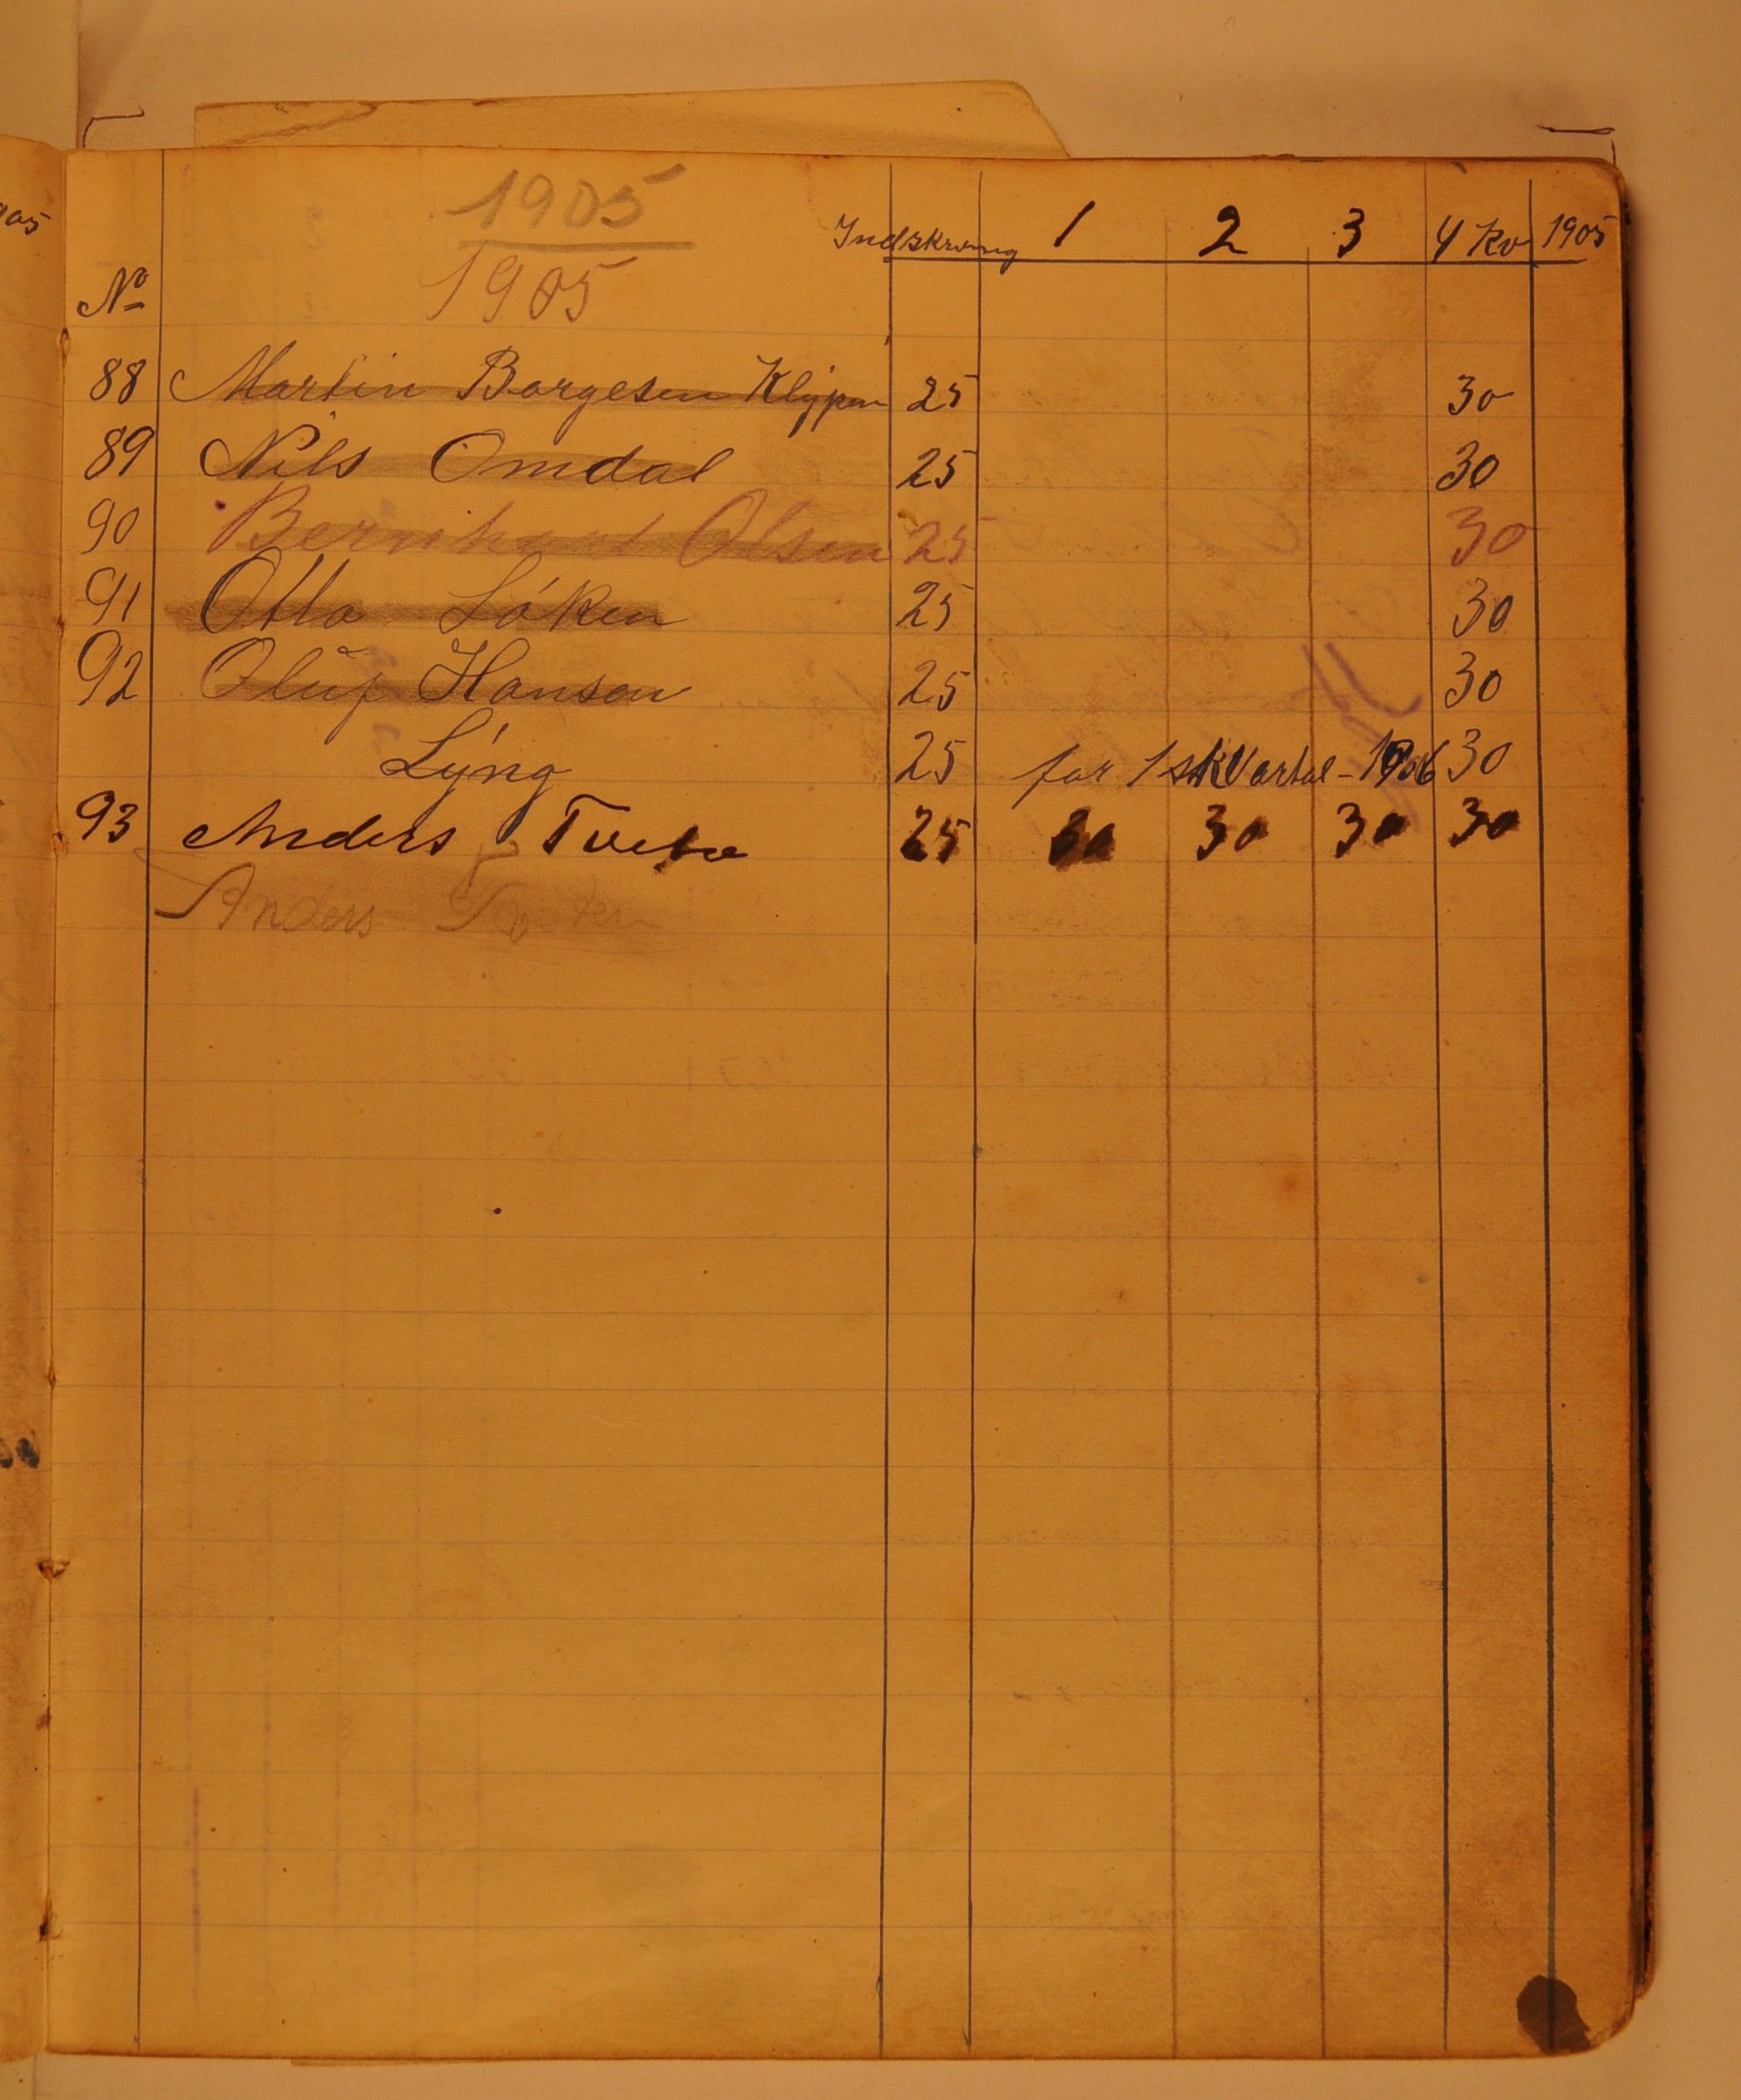 1905
Indskrvning 1 2 3 4 Kv 1905
1905
No
88 Martin Borgesen Klypen 25 30
89 Nils Omdal 25 30
90 Bernhart Olsen 25 30
91 Otto Löken 25 30
92 Oluf Hansen 25 30
Lyng 25 for 1ste Kvartal - 1906 30
93 Anders Tveta 25 30 30 30 30
Anders